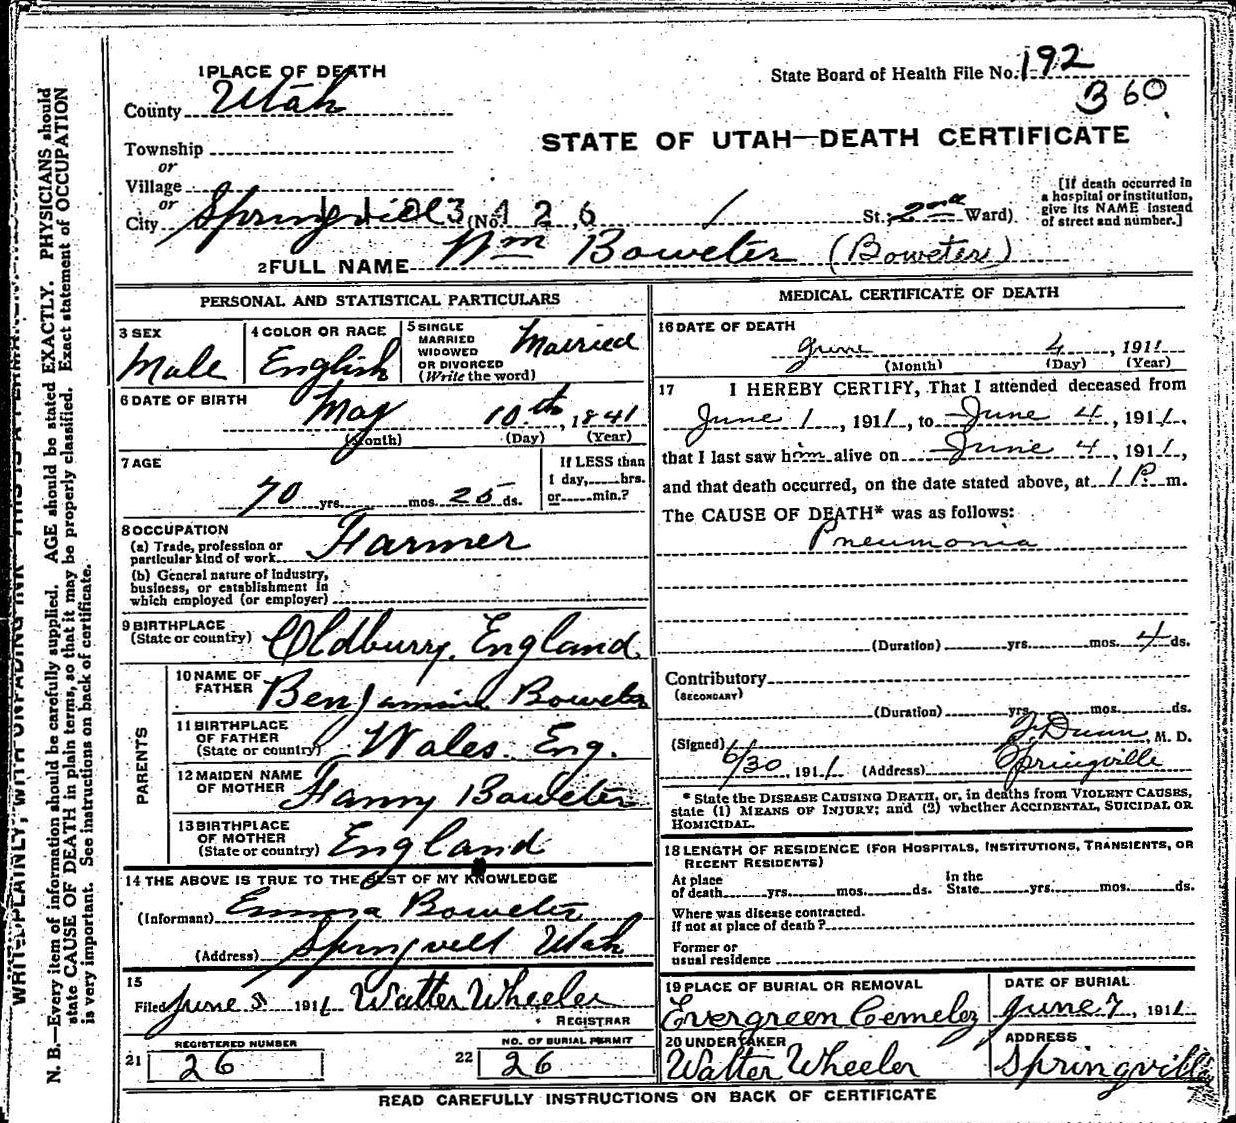 1 PLACE OF DEATH
State Board of Health File No. 192
360
County Utah
STATE OF UTAH—DEATH CERTIFICATE
Township
or
Village
or
City Springville (No. 126 St; 2nd Ward)
[If death occurred in
a hospital or institution,
give its NAME instead
of street and number.]
2 FULL NAME Wm Boweter (Boweter)
PERSONAL AND STATISTICAL PARTICULARS
3 SEX
Male
4 COLOR OR RACE
English
5 SINGLE
MARRIED
WIDOWED
OR DIVORCED
(Write the word)
Married
6 DATE OF BIRTH
May 10th, 1841
(Month) (Day) (Year)
7 AGE
70 yrs. mos. 25 ds.
If LESS than
1 day, hrs.
or min.?
8 OCCUPATION
(a) Trade, profession or
particular kind of work
Farmer
(b) General nature of industry,
business, or establishment in
which employed (or employer)
9 BIRTHPLACE
(State or country) Oldburry, England
PARENTS
10 NAME OF
FATHER
Benjamin Boweter
11 BIRTHPLACE
OF FATHER
(State or country) Wales Eng.
12 MAIDEN NAME
OF MOTHER
Fanny Boweter
13 BIRTHPLACE
OF MOTHER
(State or country) England
14 THE ABOVE IS TRUE TO THE BEST OF MY KNOWLEDGE
(Informant) Emma Boweter
(Address) Springvill Utah
15
Filed June 5 1911 Walter Wheeler
REGISTRAR
21
REGISTERED NUMBER
26
22
NO. OF BURIAL PERMIT
26
MEDICAL CERTIFICATE OF DEATH
16 DATE OF DEATH
June 4, 1911
(Month) (Day) (Year)
17 I HEREBY CERTIFY, That I attended deceased from
June 1, 1911, to June 4, 1911,
that I last saw him alive on June 4, 1911,
and that death occurred, on the date stated above, at 1 P. m.
The CAUSE OF DEATH* was as follows:
Pneumonia
(Duration) yrs. mos. 4 ds.
Contributory
(SECONDARY)
(Duration) yrs. mos. ds.
(Signed) Dunn M. D.
6/30 1911 (Address) Springville
* State the DISEASE CAUSING DEATH, or, in deaths from VIOLENT CAUSES,
state (1) MEANS OF INJURY; and (2) whether ACCIDENTAL, SUICIDAL OR
HOMICIDAL.
18 LENGTH OF RESIDENCE (FOR HOSPITALS, INSTITUTIONS, TRANSIENTS, OR
RECENT RESIDENTS)
At place
of death yrs. mos. ds.
In the
State yrs. mos. ds.
Where was disease contracted.
If not at place of death?
Former or
usual residence
19 PLACE OF BURIAL OR REMOVAL
Evergreen Cemetery
DATE OF BURIAL
June 7, 1911
20 UNDERTAKER
Walter Wheeler
ADDRESS
Springville
READ CAREFULLY INSTRUCTIONS ON BACK OF CERTIFICATE
WRITE PLAINLY, WITH UNFADING INK—THIS IS A PERMANENT
N. B.—Every item of information should be carefully supplied. AGE should be stated EXACTLY. PHYSICIANS should
state CAUSE OF DEATH in plain terms, so that it may be properly classified. Exact statement of OCCUPATION
is very important. See instructions on back of certificate.